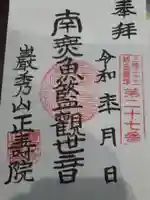 奉拝
令和 年 月 日
第二十七番
南無魚籃観世音
巖秀山正壽院